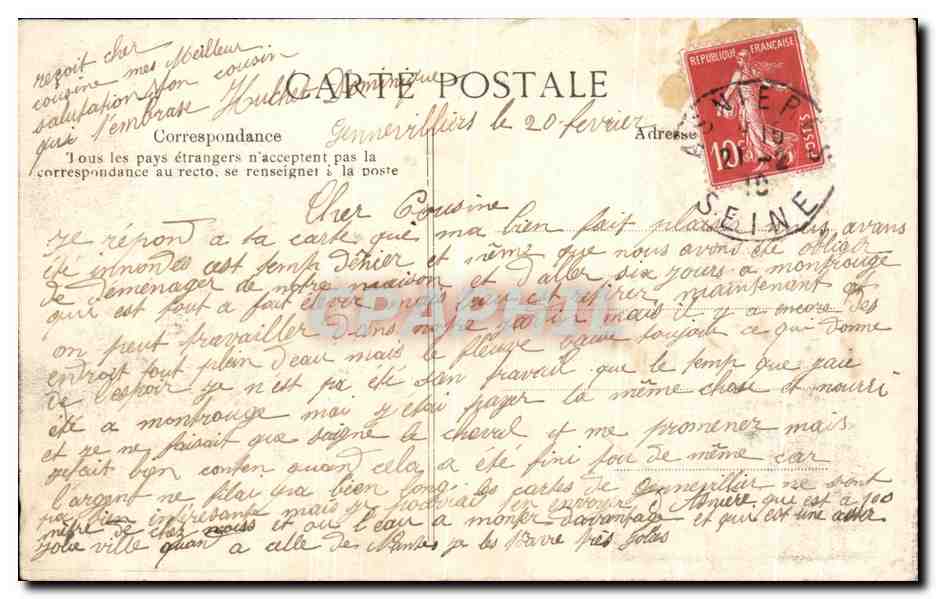 reçoit cher
cousine mes Meilleur
salutation ton cousin
qui t'embrase Huchet Dominique
CARTE POSTALE
Correspondance
Tous les pays étrangers n'acceptent pas la
correspondance au recto, se renseigner à la poste
Adresse
REPUBLIQUE FRANÇAISE
10c
POSTES
SEINE
Gennevilliers le 20 fevrier
Cher Cousine
Je répond a ta carte qui ma bien fait plaisir avans
été innondes cest temp dénier et même que nous avons été obliger
de déménager de notre maison et d'aller six jours a montrouge
qui est tout a fait mais leau est retirer maintenant et
on peut travailler dans notre jardin mais il y a encore des
endroit tout plein d'eau mais le fleuve baise toujour ce qui donne
de l'espoir je n'est pa été san travail que le temp que jaie
été a montrouge mai j'étai payer la même chose et nourri
et je ne faisait que saigne le cheval et me promenez mais
jetait bien conten quand cela a été fini tou de même car
l'argent ne filai pa bien long les cartes de Gennevillier ne sont
pa bien intéresante mais je pourrai t'en envoyer d'Aniere que est a 100
mètre de chez nous et ou l'eau a monter davantage et qui est une
jolie ville quan a celle de Nantes je les trés jolies
CPAPHIL